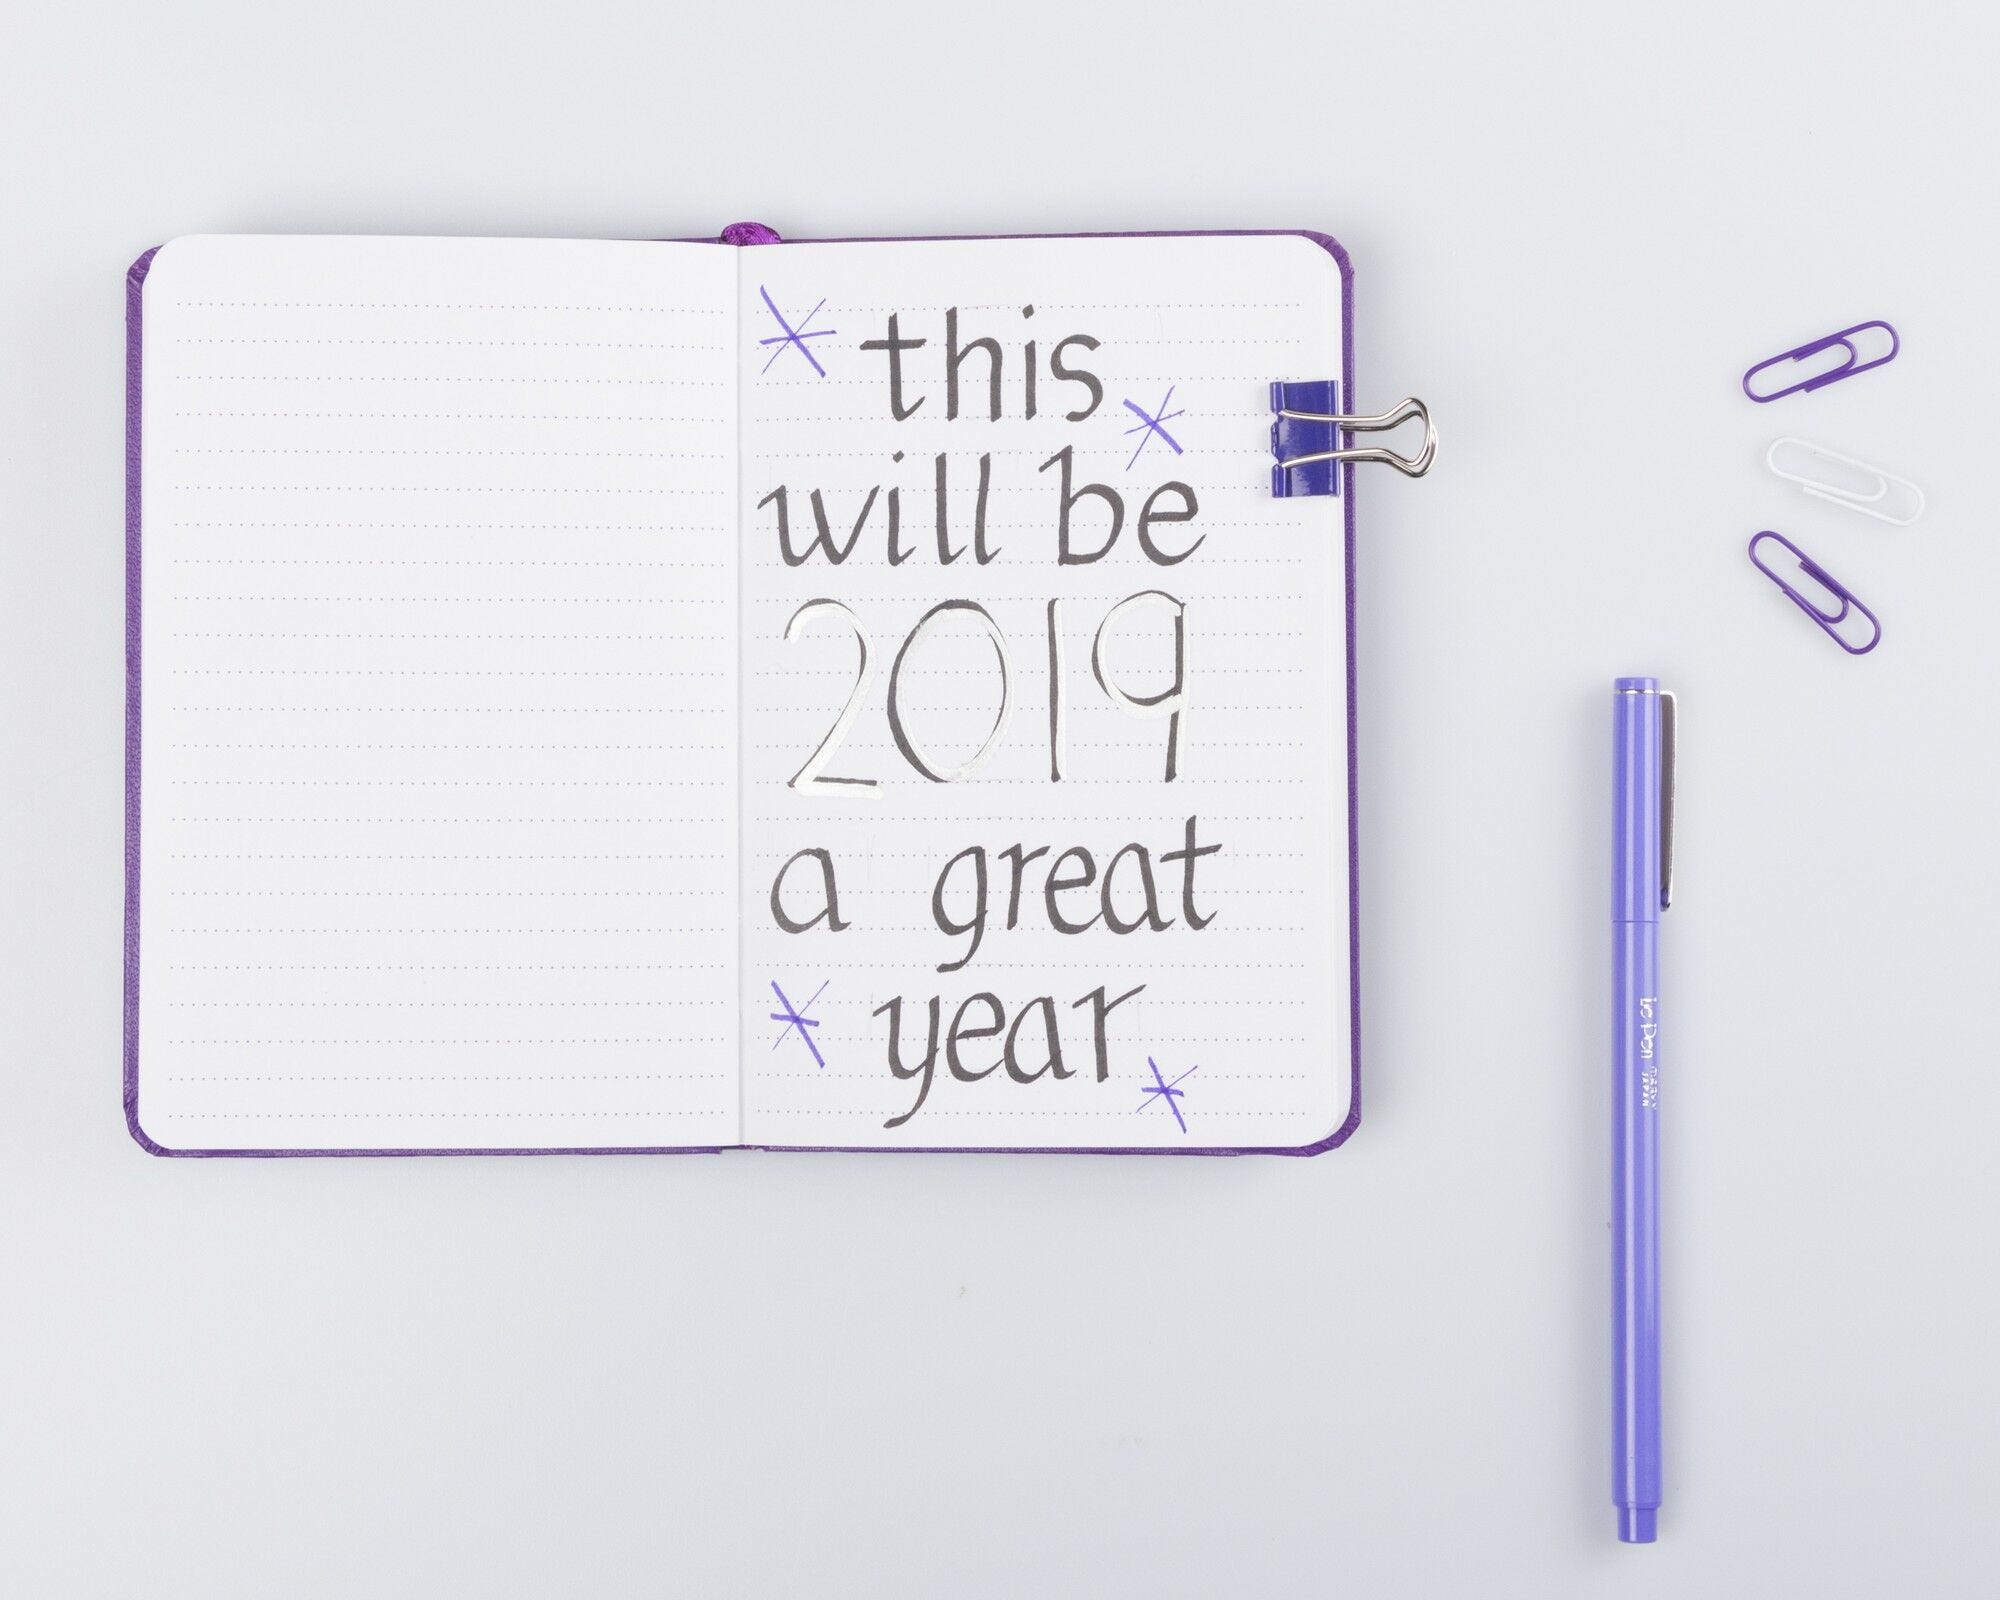 this
will be
2019
a great
year
Le Pen